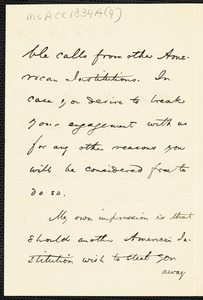 Ms ACC 1534A(4)
ble calls from other Ame-
rican Institutions. In
case you desire to break
your engagement with us
for any other reasons you
will be considered free to
do so.
My own impression is that
should another American In-
stitution wish to steal you
away